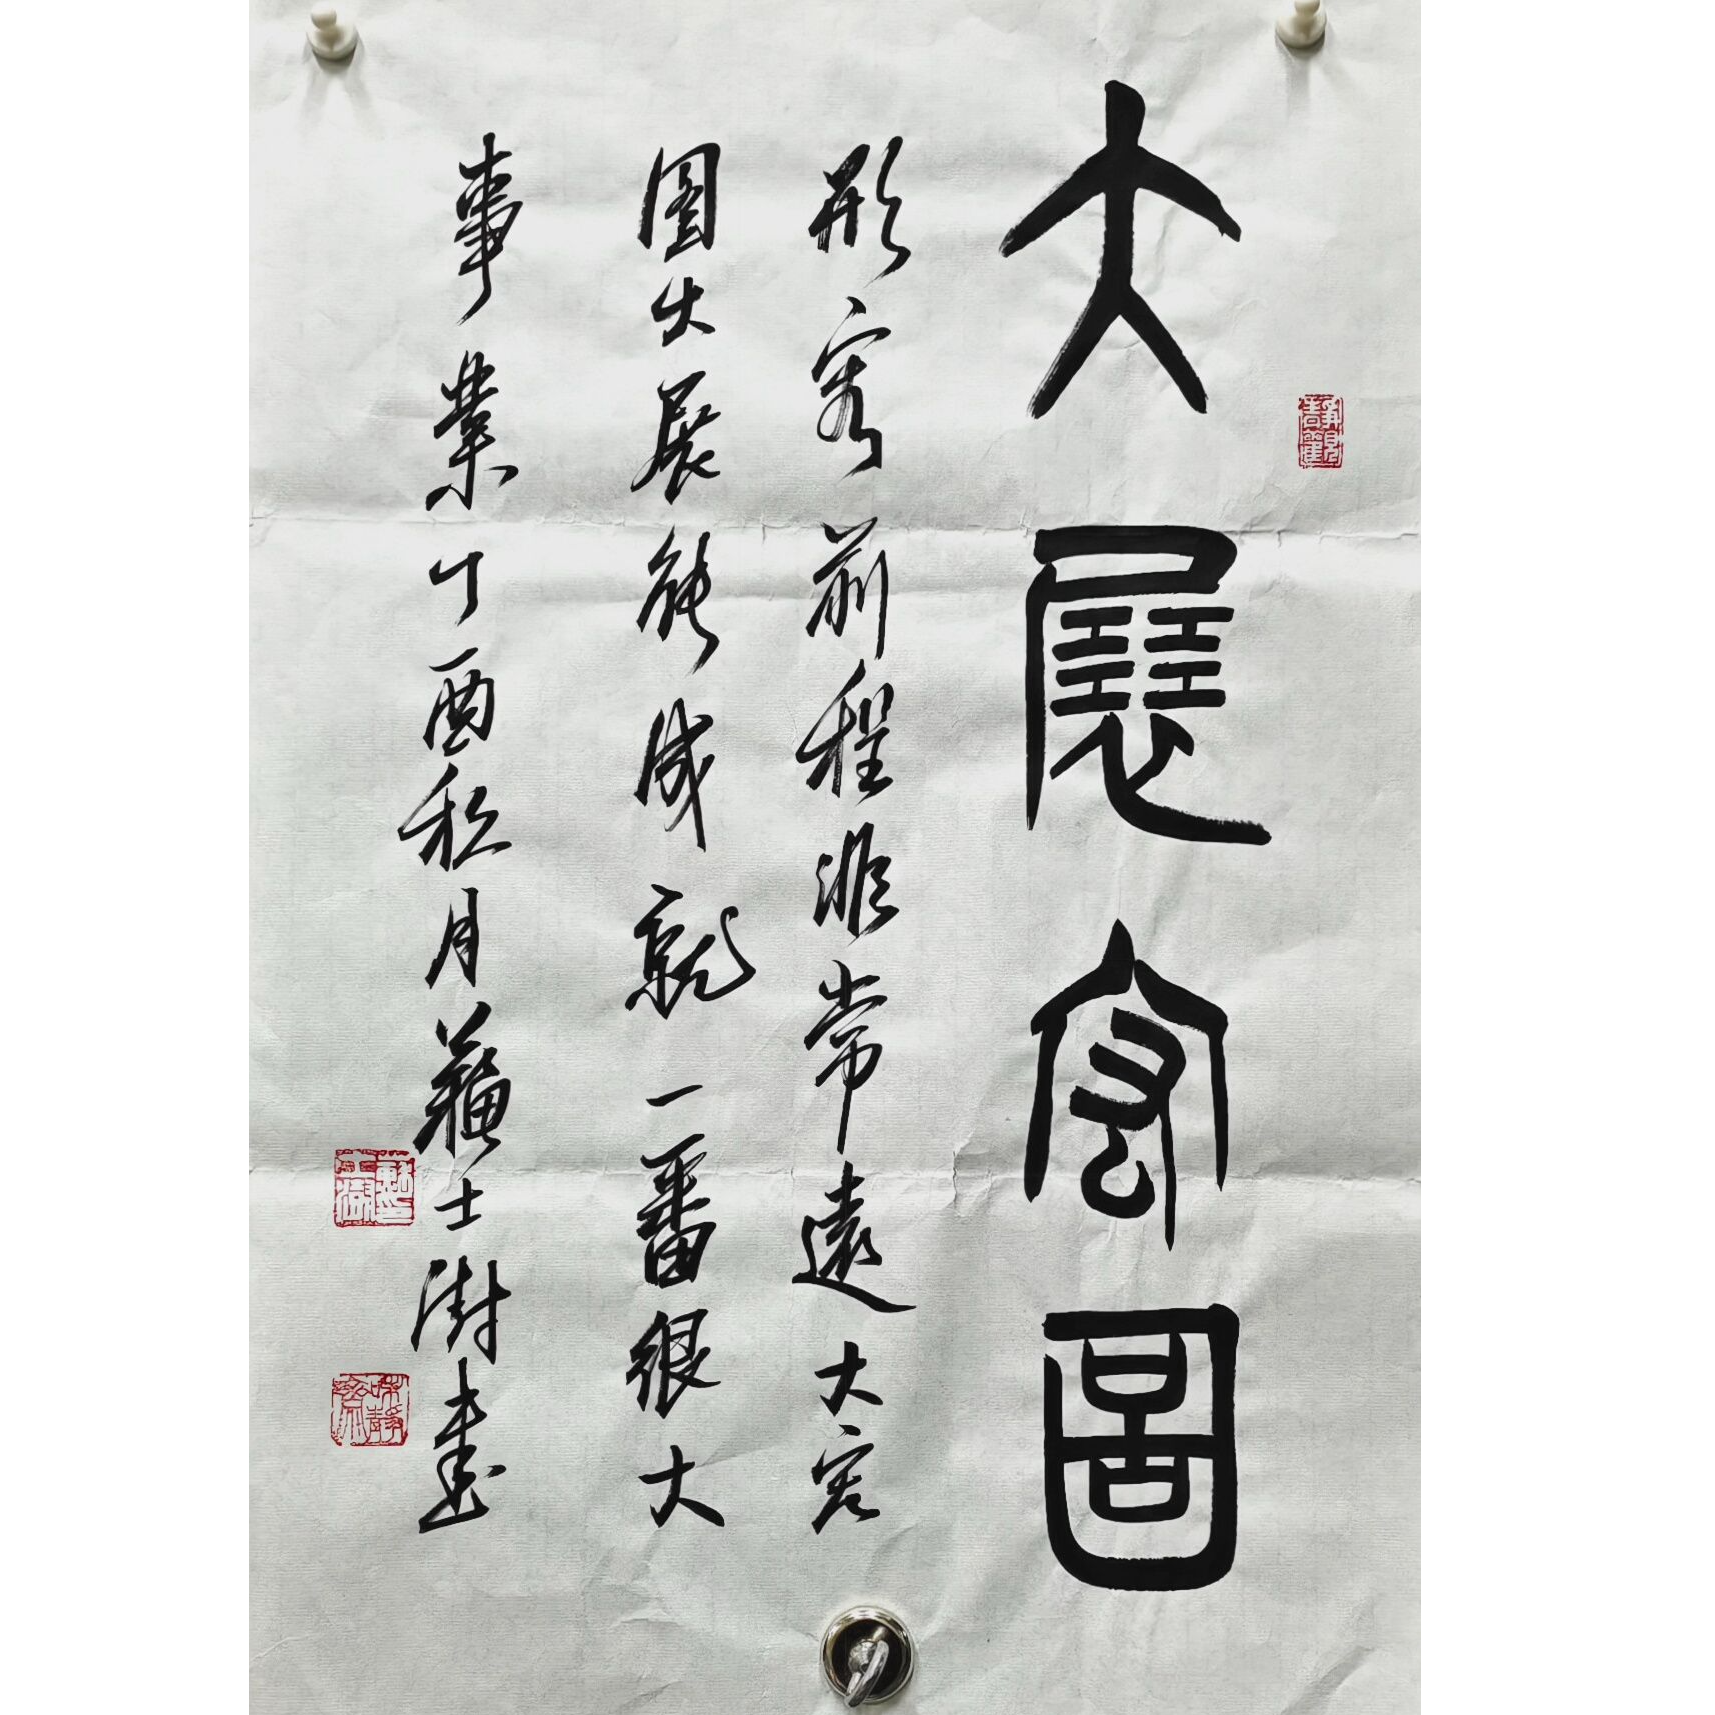 大展宏圖
形容前程非常遠大宏
图大展能成就一番很大
事業丁酉秋月蘇士澍書